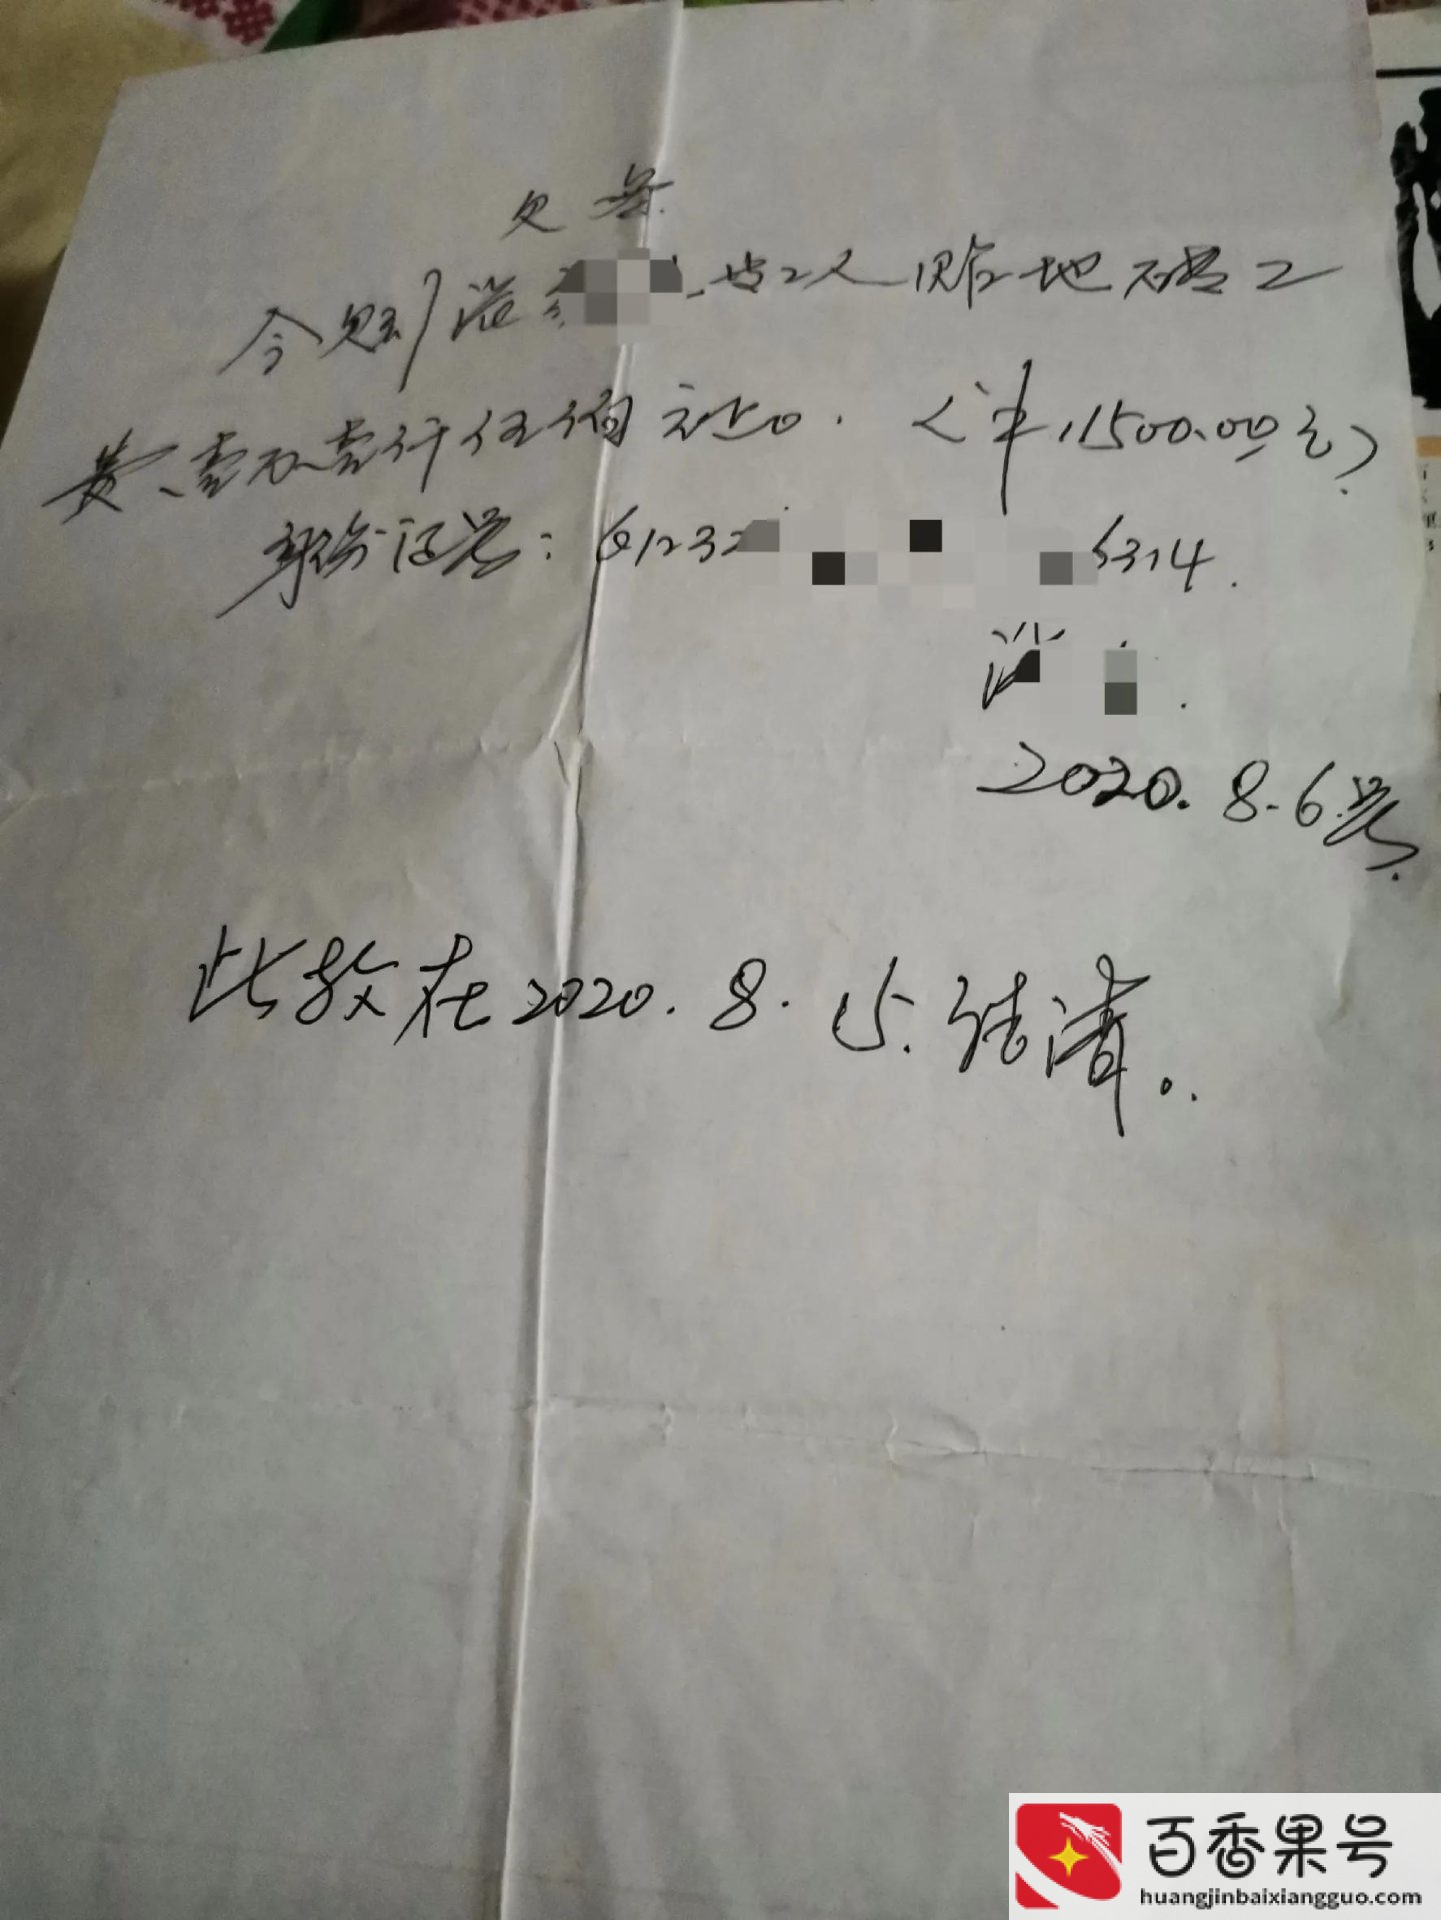 欠条
今欠到 等2人贴地砖工
费、壹万壹仟伍佰元正. (￥11500.00元)
身份证号: 61232 5314.
2020. 8. 6号.
此款在2020. 8. 15. 结清.
百香果号
huangjinbaixiangguo.com